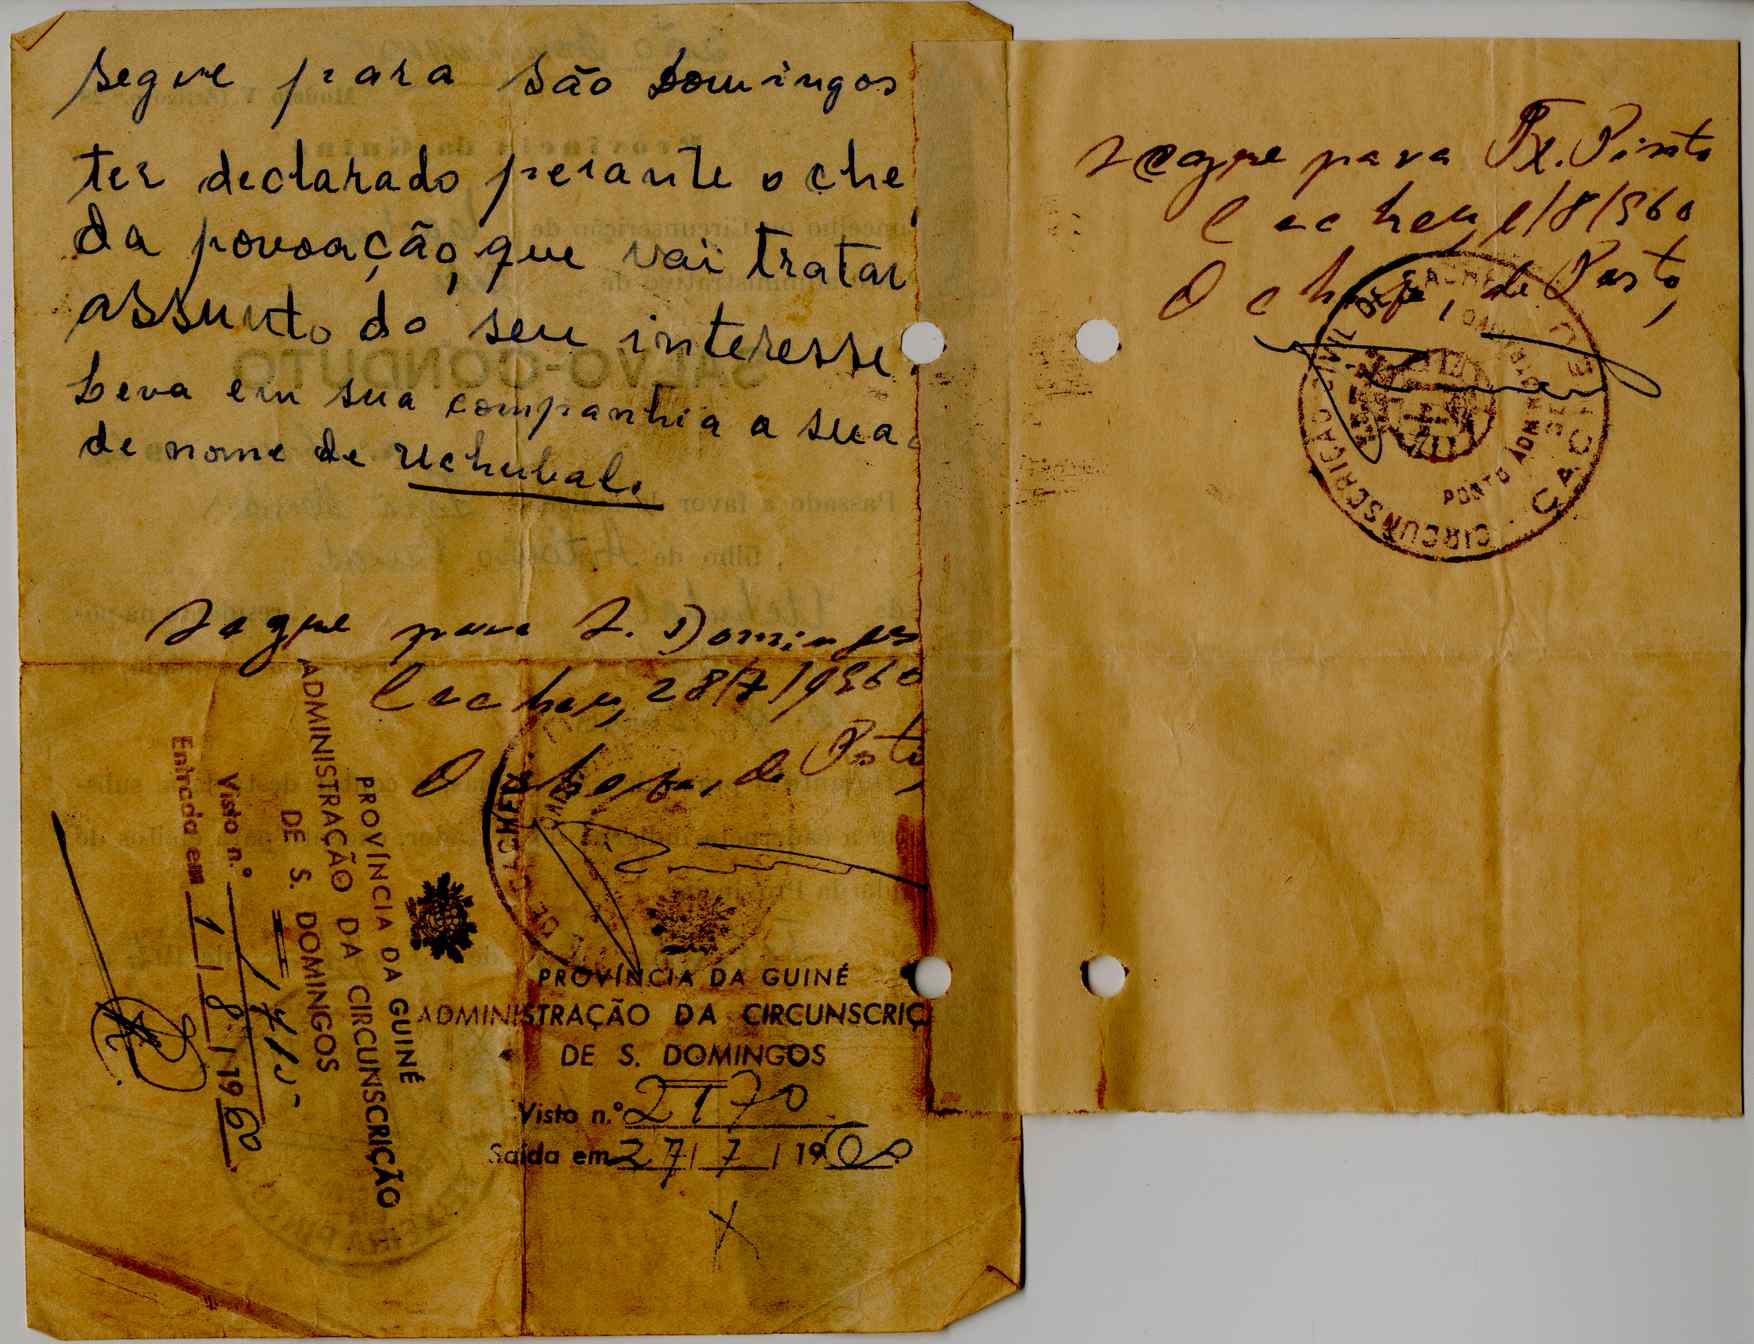 segue para são Domingos
ter declarado perante o che
da povoação, que vai tratar
assunto do seu interesse.
Leva em sua companhia a sua
de nome de Uchubal.
Segue para S. Domingos
Cacheu, 28/7/1960
O chefe, de Posto,
CACHEU
PROVÍNCIA DA GUINÉ
ADMINISTRAÇÃO DA CIRCUNSCRIÇ
DE S. DOMINGOS
Visto n.º 2170
Saída em 27/7/1960
PROVÍNCIA DA GUINÉ
ADMINISTRAÇÃO DA CIRCUNSCRIÇÃO
DE S. DOMINGOS
Visto n.º
Entrada em 1/8/1960
SALVO-CONDUTO
Passado a favor
filho de António
segue para Tx. Pinto
Cacheu, 1/8/960
O chefe, de Posto,
CIRCUNSCRIÇÃO CIVIL DE CACHEU
POSTO ADMINISTRATIVO
DE CACHEU